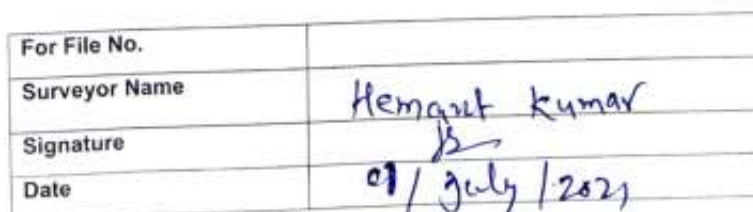 For File No.
Surveyor Name Hemant Kumar
Signature
Date 01/July/2021